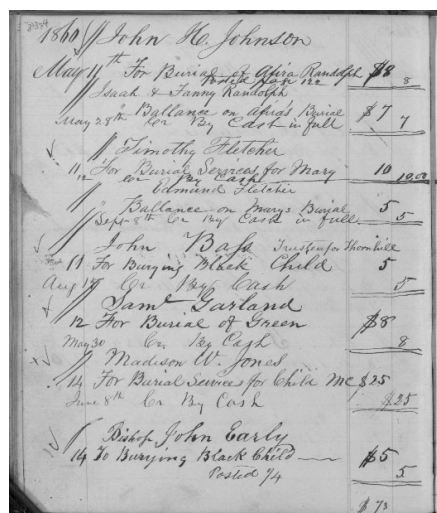 1860 John H. Johnson
May 11th For Burial of Afira Randolph $8 8
Isaah & Fanny Randolph
" Ballance on Afira's Burial $7
May 28th Cr By Cash in full 7
Timothy Fletcher
11 For Burial Services for Mary 10
Cr By Cash 10,00
Edmund Fletcher
" Ballance on Mary's Burial 5
Sept 8th Cr By Cash in full 5
John Bass Trustee for Thornhill
11 For Burying Black Child 5
Aug Cr By Cash 5
Saml Garland
12 For Burial of Green $8
May 30 Cr By Cash 8
Madison W. Jones
14 For Burial Services for Child Mc $25
June 8th Cr By Cash $25
Bishop John Early
14 To Burying Black Child $5
Posted 1/4 5
$73